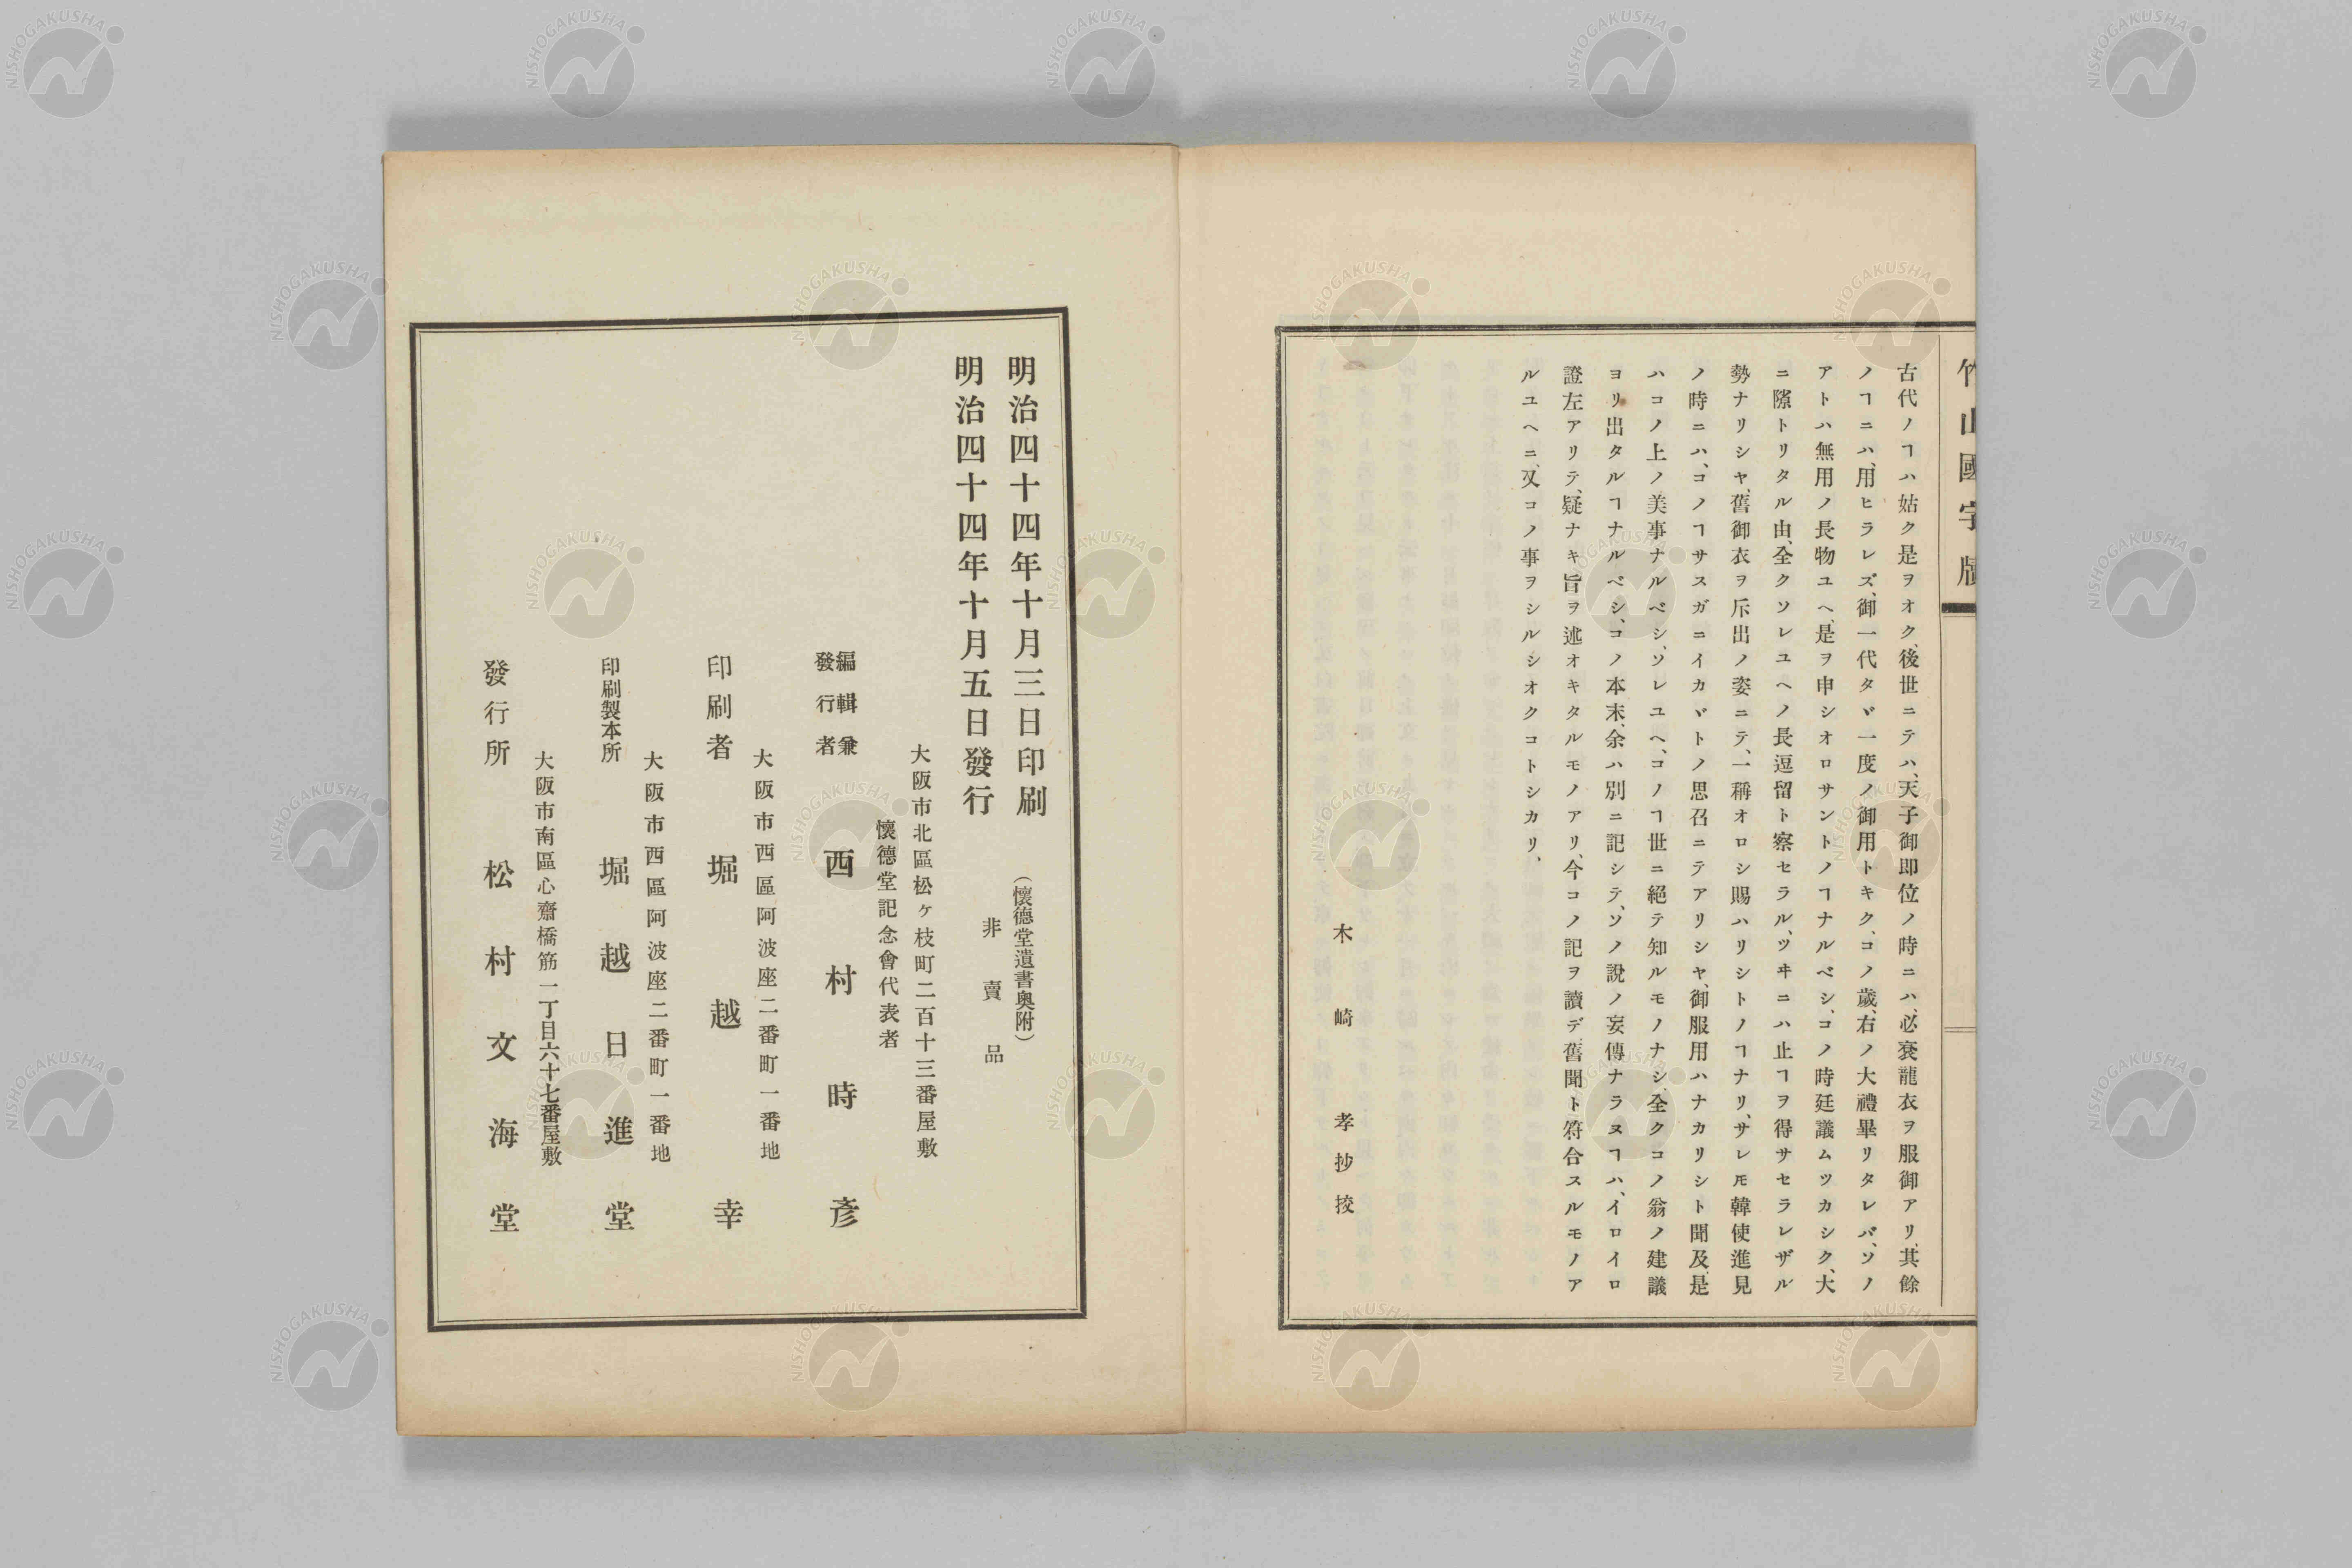 竹山國字牘
古代ノヿハ姑ク是ヲオク、後世ニテハ、天子御即位ノ時ニハ、必袞龍衣ヲ服御アリ、其餘
ノヿニハ、用ヒラレズ、御一代タヾ一度ノ御用トキク、コノ歲、右ノ大禮畢リタレバ、ソノ
アトハ無用ノ長物ユヘ、是ヲ申シオロサントノヿナルベシ、コノ時廷議ムツカシク、大
ニ隙トリタル由、全クソレユヘノ長逗留ト察セラル、ツキニハ止ヿヲ得サセラレザル
勢ナリシヤ、舊御衣ヲ斥出ノ姿ニテ、一稱オロシ賜ハリシトノヿナリ、サレ𪜈韓使進見
ノ時ニハ、コノヿサスガニイカヾトノ思召ニテアリシヤ、御服用ハナカリシト聞及、是
ハコノ上ノ美事ナルベシ、ソレユヘ、コノヿ世ニ絕テ知ルモノナシ、全クコノ翁ノ建議
ヨリ出タルヿナルベシ、コノ本末、余ハ別ニ記シテ、ソノ說ノ妄傳ナラヌヿハ、イロイロ
證左アリテ、疑ナキ旨ヲ述オキタルモノアリ、今コノ記ヲ讀デ、舊聞ト符合スルモノア
ルユヘニ、又コノ事ヲシルシオクコトシカリ、
木崎 孝抄挍
明治四十四年十月三日印刷
(懷德堂遺書奧附)
明治四十四年十月五日發行
非賣品
大阪市北區松ヶ枝町二百十三番屋敷
懷德堂記念會代表者
編輯兼
發行者
西村時彥
大阪市西區阿波座二番町一番地
印刷者 堀越幸
大阪市西區阿波座二番町一番地
印刷製本所 堀越日進堂
大阪市南區心齋橋筋一丁目六十七番屋敷
發行所 松村文海堂
NISHOGAKUSHA